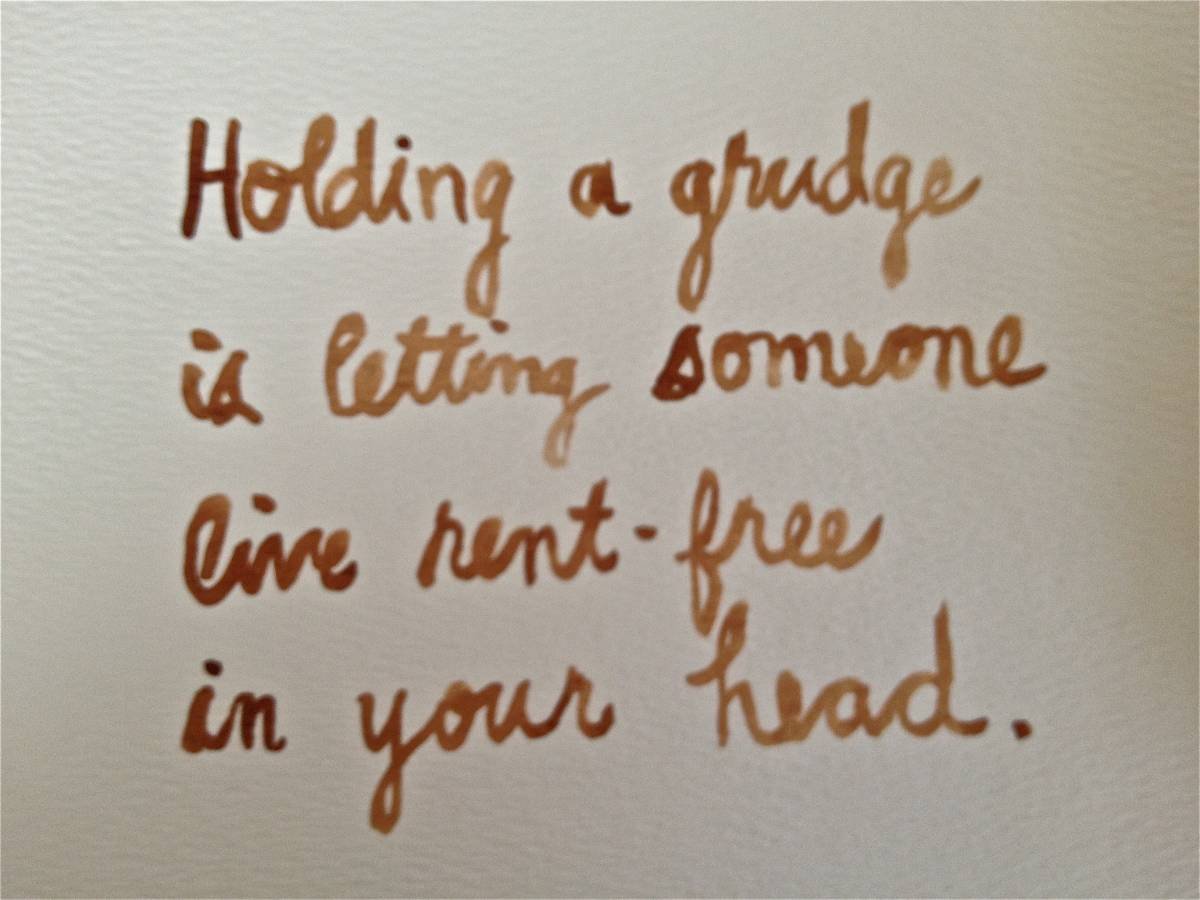 Holding a grudge
is letting someone
live rent-free
in your head.